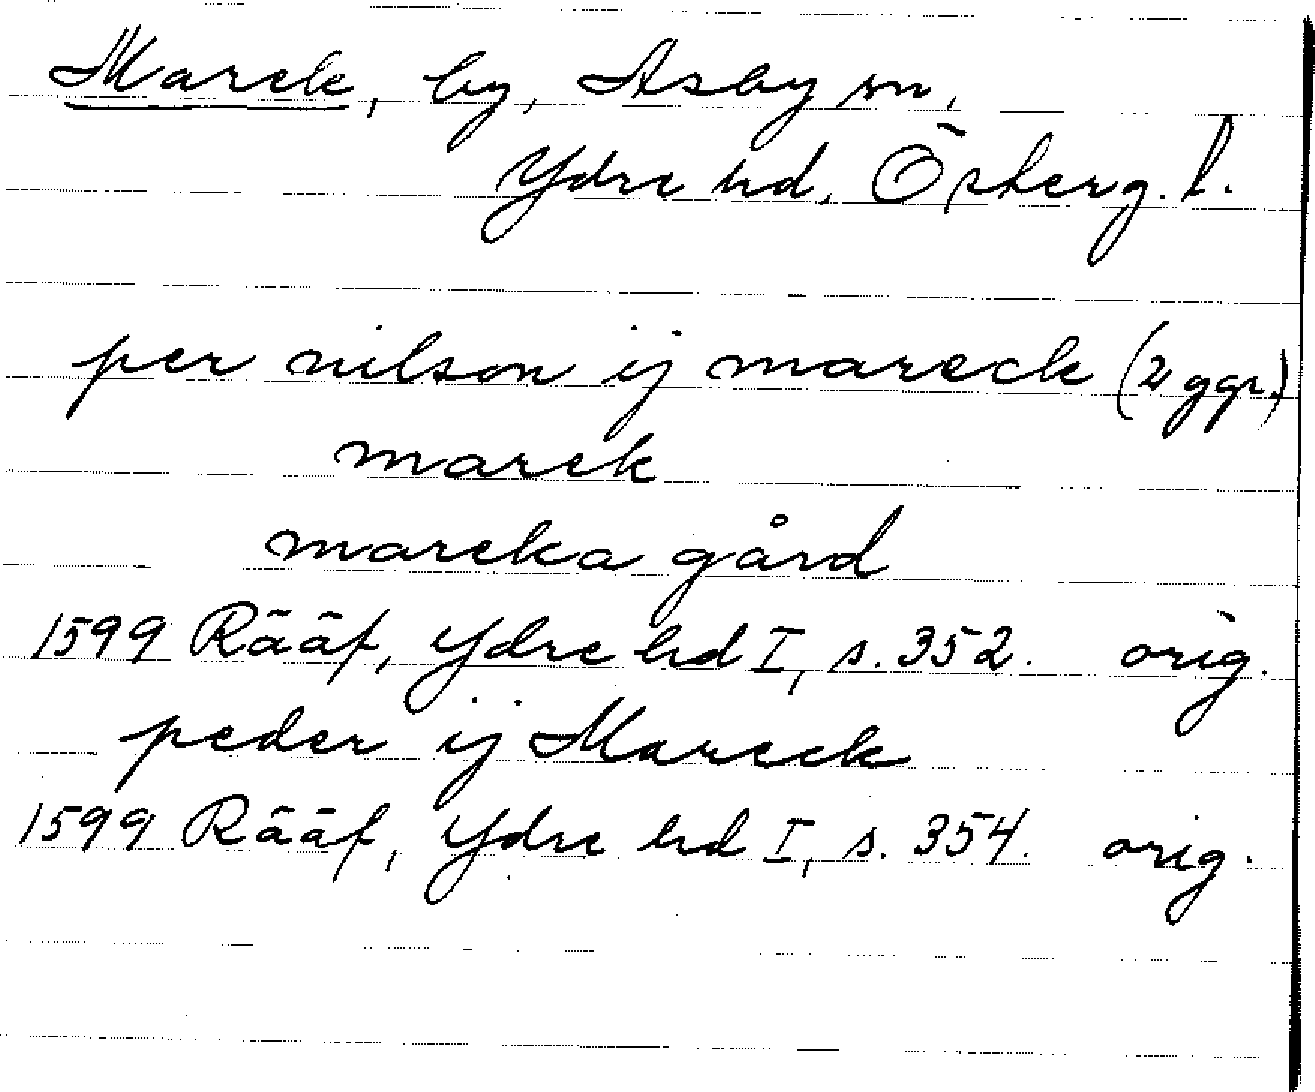 Marek, by, Asby sn,
Ydre hd, Österg. l.
per nilson ij mareck (2 ggr.)
marek
mareka gård
1599 Rääf, Ydre hd I, s. 352. orig.
peder ij Mareck
1599 Rääf, Ydre hd I, s. 354. orig.